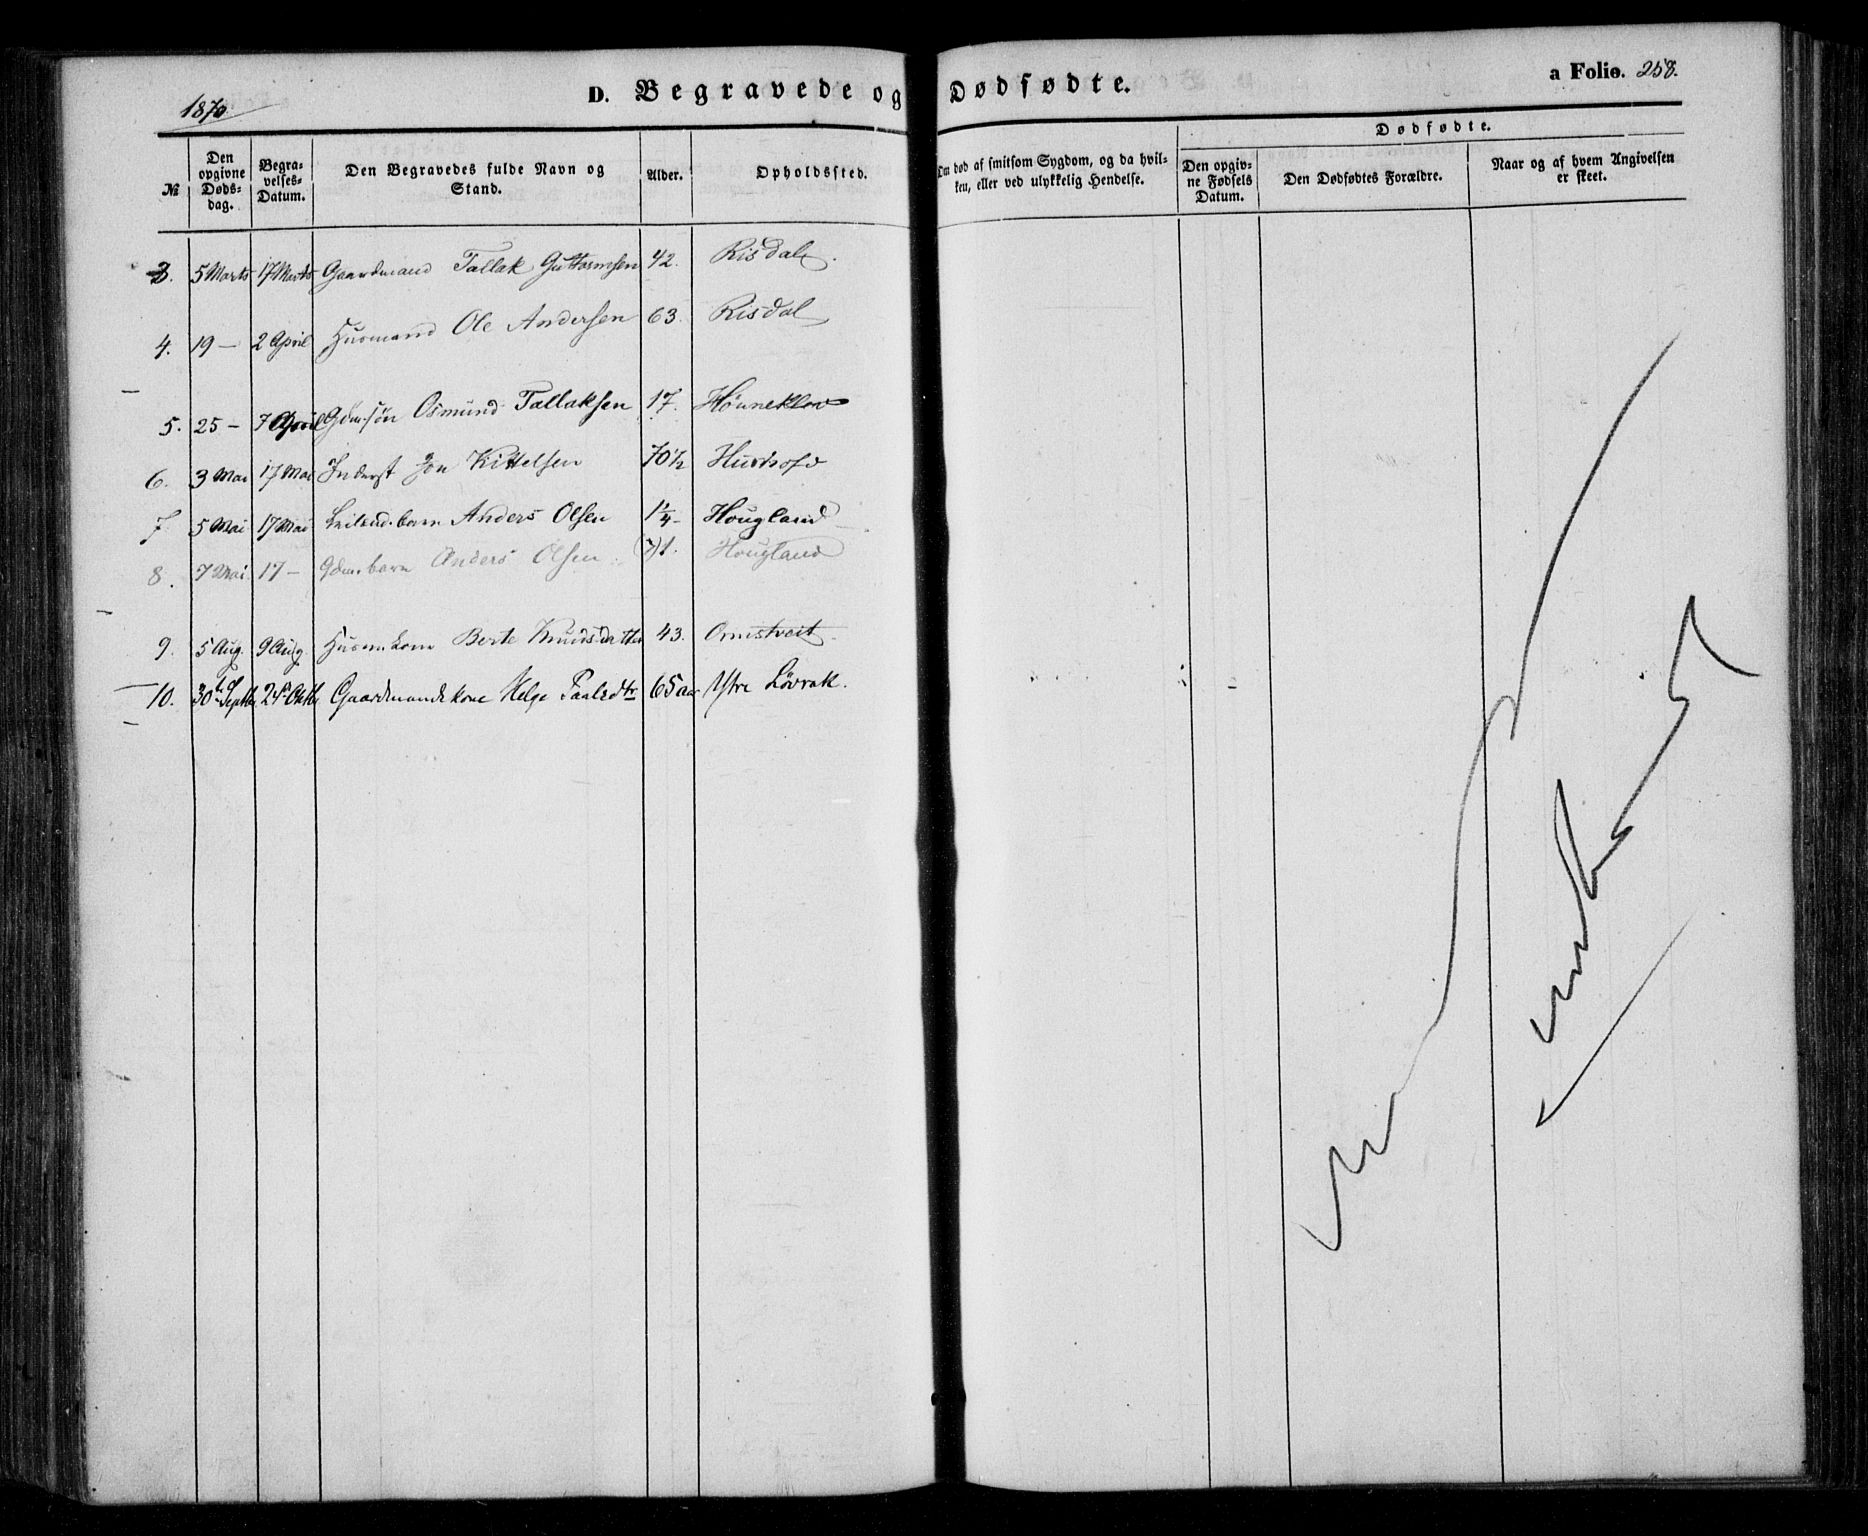 1870.
D. Begravede og Dødfødte.
a Folio. 258.
№
Den opgivne Døds-dag.
Begra-velses-Datum.
Den Begravedes fulde Navn og Stand.
Alder.
Opholdssted.
Om død af smitsom Sygdom, og da hvil-ken, eller ved ulykkelig Hendelse.
Dødfødte.
Den opgiv-ne Fødsels Datum.
Den Dødfødtes Forældre.
Naar og af hvem Angivelsen er skeet.
3. 5 Marts 17 Marts Gaardmand Tallak Guttormsen 42. Risdal.
4. 19 — 2 April Husmand Ole Andersen 63. Risdal
5. 25 — 7 April Gdm.søn Osmund Tallaksen 17. Hønneklev
6. 3 Mai 17 Mai Inderst Jon Kittelsen 70½
7 5 Mai 17 Mai barn Anders Olsen 1¼ Hougland
8. 7 Mai 17 — Gdm.barn Anders Olsen 1. Hougland
9. 5 Aug. 9 Aug. Husm.kone Berte Knudsdatter 43. Ormstveit.
10. 30 Septbr 24 Oktbr Gaardmandskone Helge Paalsdtr 65 aar Ytre Løvrak.